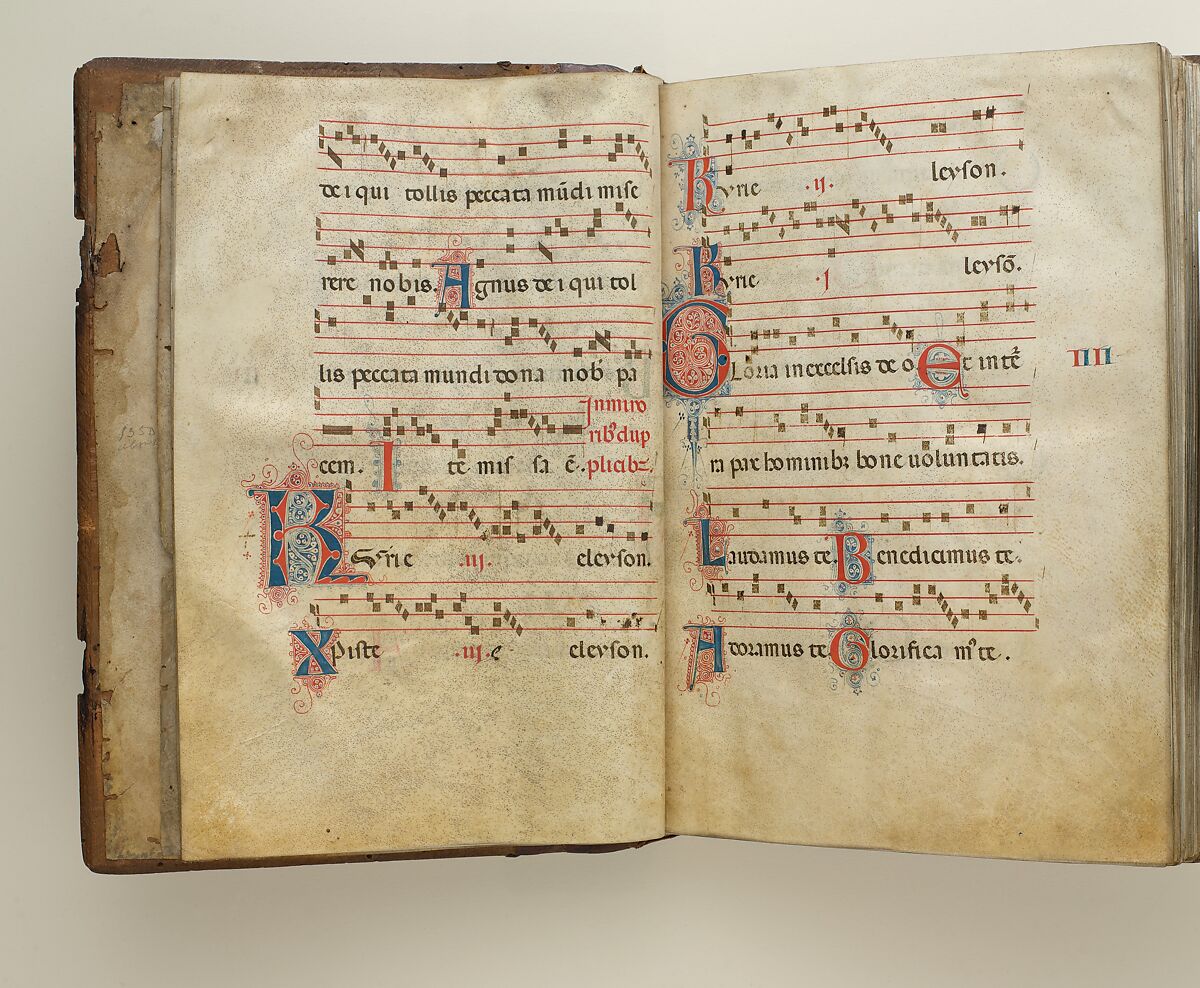 de i qui tollis peccata mūdi mise
rere nobis. Agnus de i qui tol
lis peccata mundi dona nob pa
In mīo
rib⁹ dup
cem. I te mis sa ē. plicibꝫ.
Kyrie .iij. eleyson.
Xpiste .iij. e eleyson.
Kyrie .ij. leyson.
Kyrie .j leysō.
Gloria in excelsis de o Et in tẽ
IIII
ra pax hominibꝫ bone uoluntatis.
Laudamus te. Benedicimus te.
Adoramus te Glorifica m⁹ te.